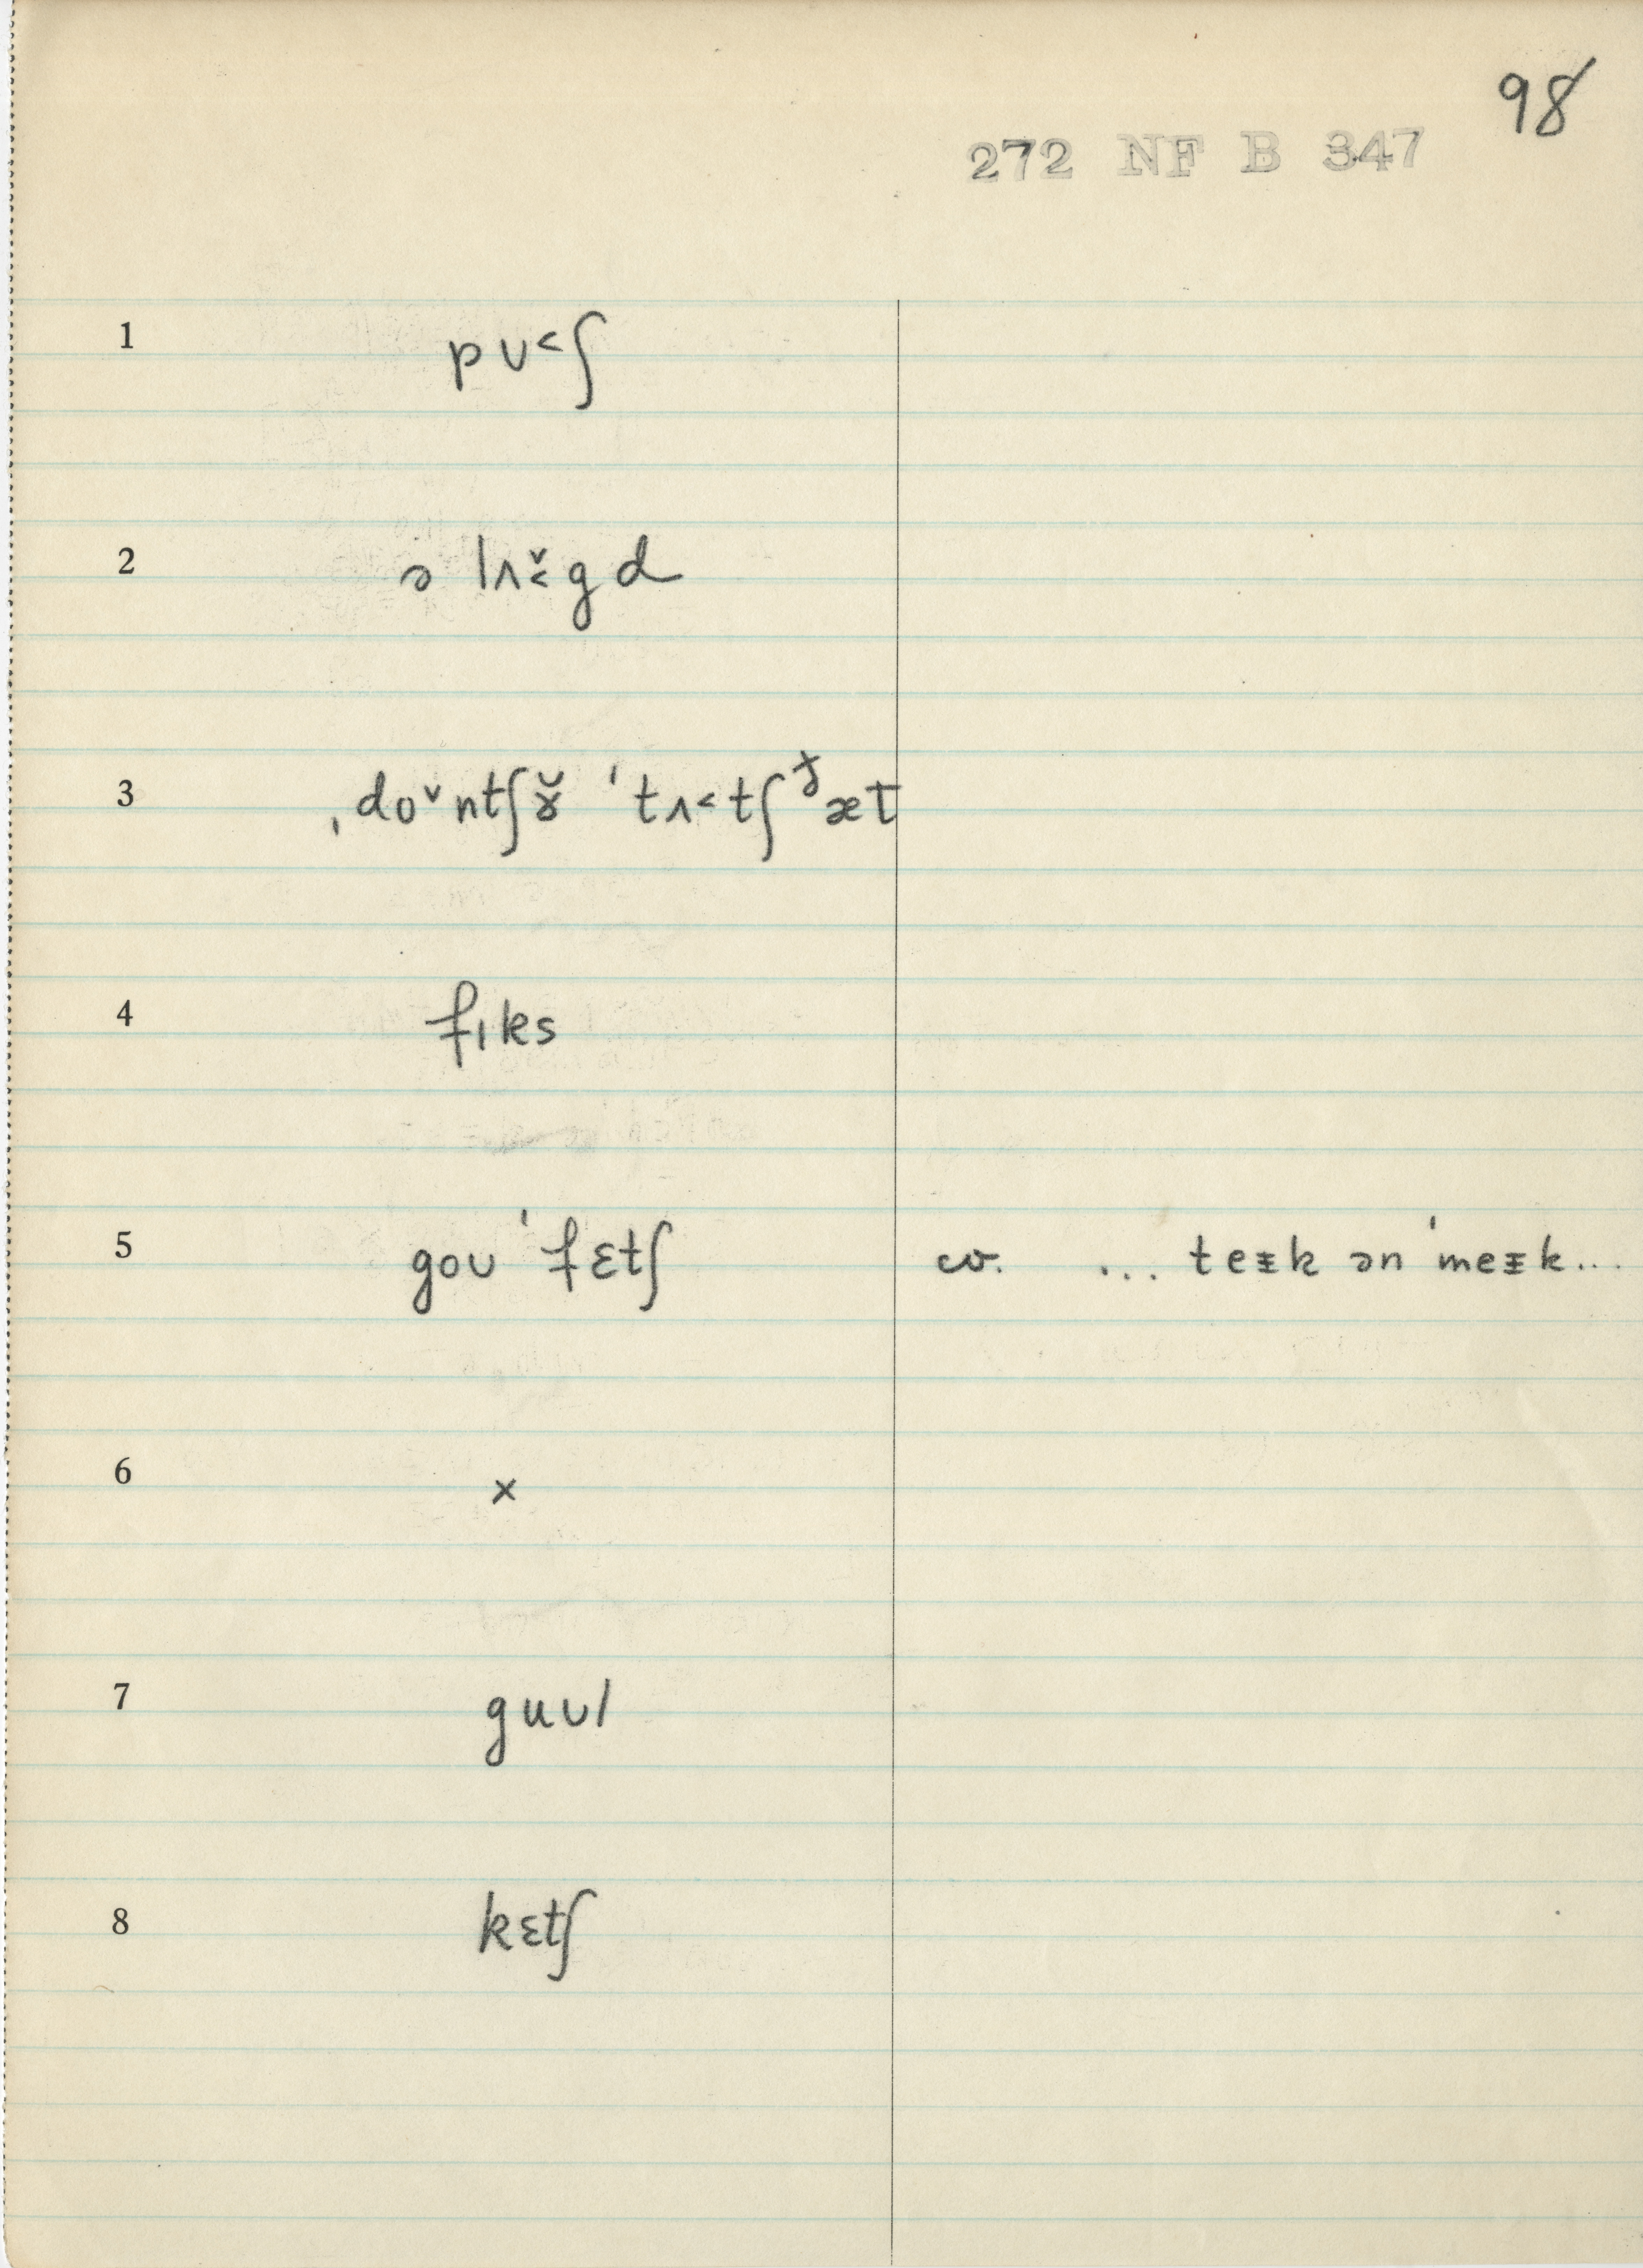 98
272 NF B 347
1 pʊ˂ʃ
2 ə lʌ̌˂gd
3 ˌdoˇntʃɤ̆ ˈtʌ˂tʃɟæt
4 fɪks
5 goʊ ˈfɛtʃ cv. ... teᵻk ən ˈmeᵻk...
6 x
7 guʊl
8 kɛtʃ